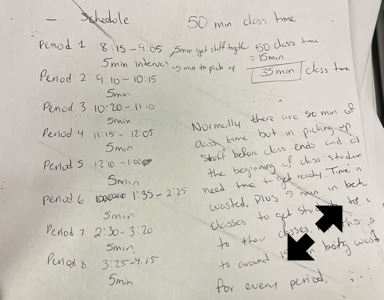 - Schedule 50 min class time
Period 1 8:15 - 9:05 5min get stuff together 50 class time
5min -5 min to pick up = 15min
Period 2 9:10 - 10:15 35min class time
5min
Period 3 10:20 - 11:10
5min
Period 4 11:15 - 12:05
5min
Period 5 12:10 -
5min
Period 6 1:35 - 2:25
5min
Period 7 2:30 - 3:20
5min
Period 8 3:25 - 4:15
5min
Normally there are 50 min of
class time but in picking up
stuff before class ends and at
the beginning of class
need time to get ready. Time is
wasted. Plus 5 min in
classes to get
to their classes.
to around being
for every period.